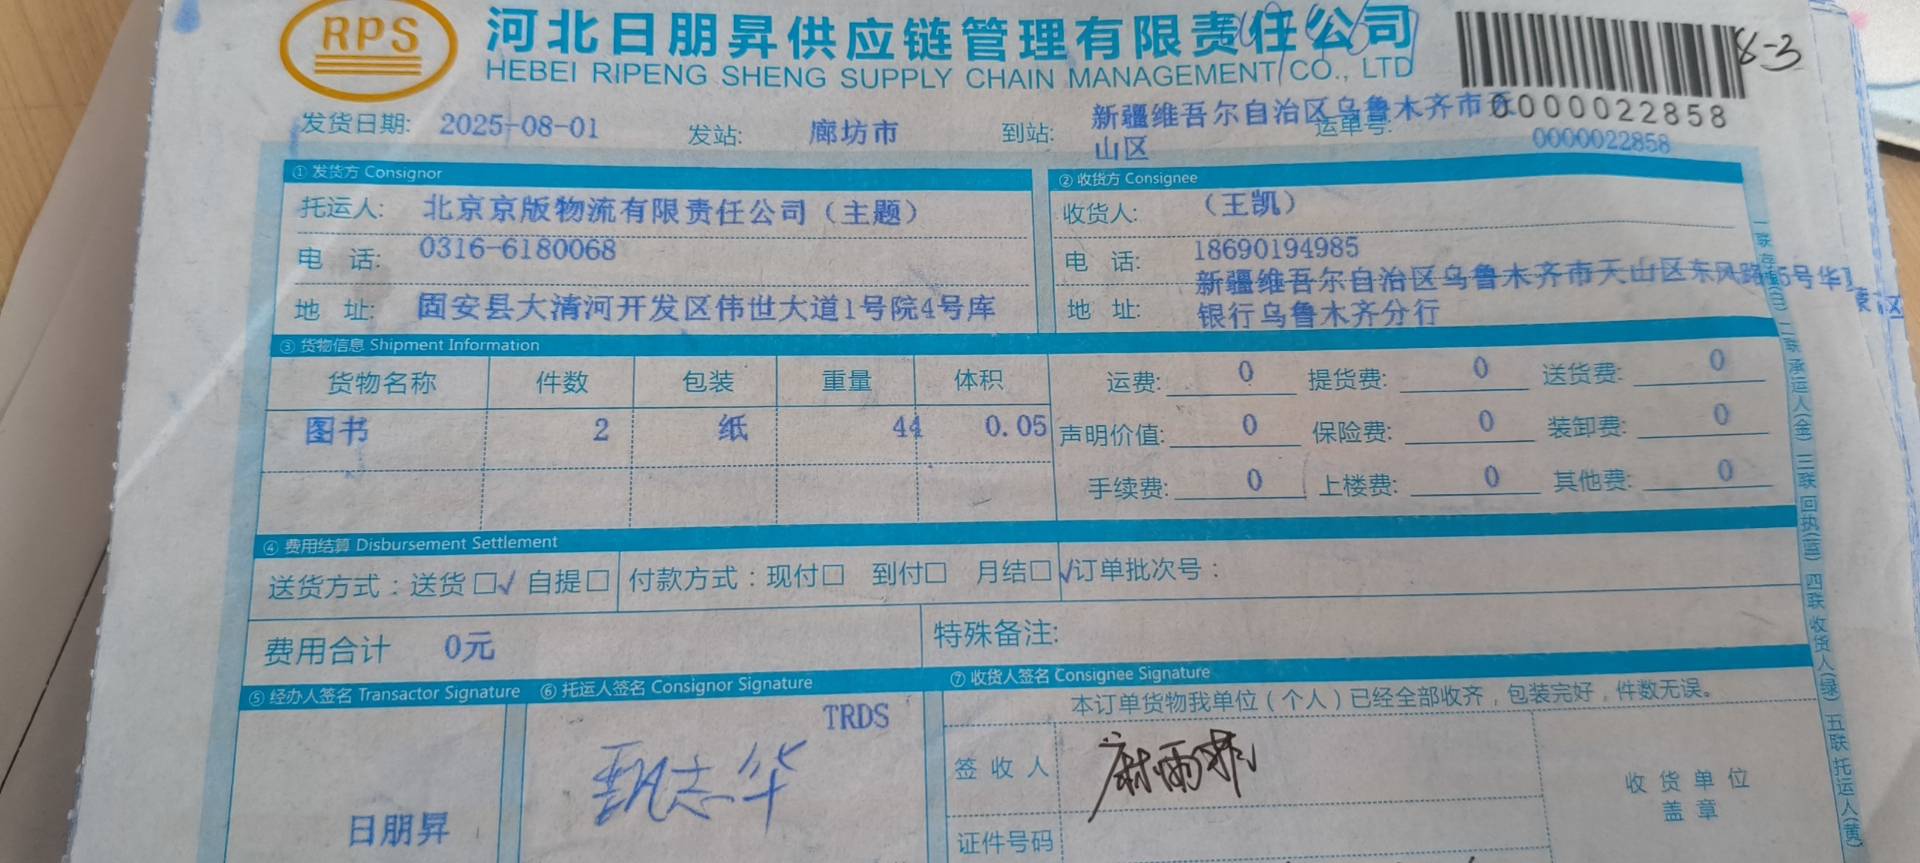 RPS
河北日朋昇供应链管理有限责任公司
HEBEI RIPENG SHENG SUPPLY CHAIN MANAGEMENT CO., LTD
8-3
0000022858
发货日期: 2025-08-01 发站: 廊坊市 到站: 新疆维吾尔自治区乌鲁木齐市天山区 运单号: 0000022858
① 发货方 Consignor ② 收货方 Consignee
托运人: 北京京版物流有限责任公司（主题） 收货人: （王凯）
电 话: 0316-6180068 电 话: 18690194985
地 址: 固安县大清河开发区伟世大道1号院4号库 地 址: 新疆维吾尔自治区乌鲁木齐市天山区东风路5号华夏银行乌鲁木齐分行
③ 货物信息 Shipment Information
货物名称 件数 包装 重量 体积 运费: 0 提货费: 0 送货费: 0
图书 2 纸 44 0.05 声明价值: 0 保险费: 0 装卸费: 0
手续费: 0 上楼费: 0 其他费: 0
④ 费用结算 Disbursement Settlement
送货方式：送货□√ 自提□ 付款方式：现付□ 到付□ 月结□√ 订单批次号：
费用合计 0元 特殊备注:
⑤ 经办人签名 Transactor Signature ⑥ 托运人签名 Consignor Signature ⑦ 收货人签名 Consignee Signature
本订单货物我单位（个人）已经全部收齐，包装完好，件数无误。
TRDS
日朋昇 甄志华 签 收 人 收 货 单 位
盖 章
证件号码
二联 承运人(金) 三联 回执(蓝) 四联 收货人(绿) 五联 托运人(黄)